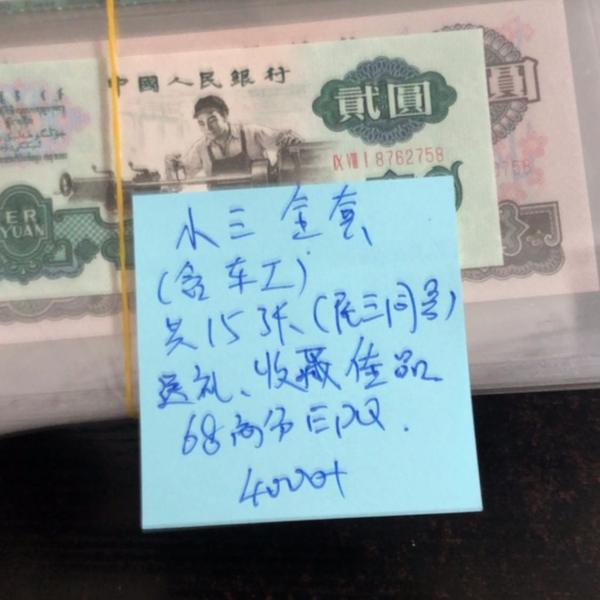 中國人民銀行
貳圓
圓
IX VIII I 8762758
758
ER
YUAN
小三全套
(含车工)
共15张、(尾三同号)
送礼、收藏佳品
68高分EPQ.
4000+